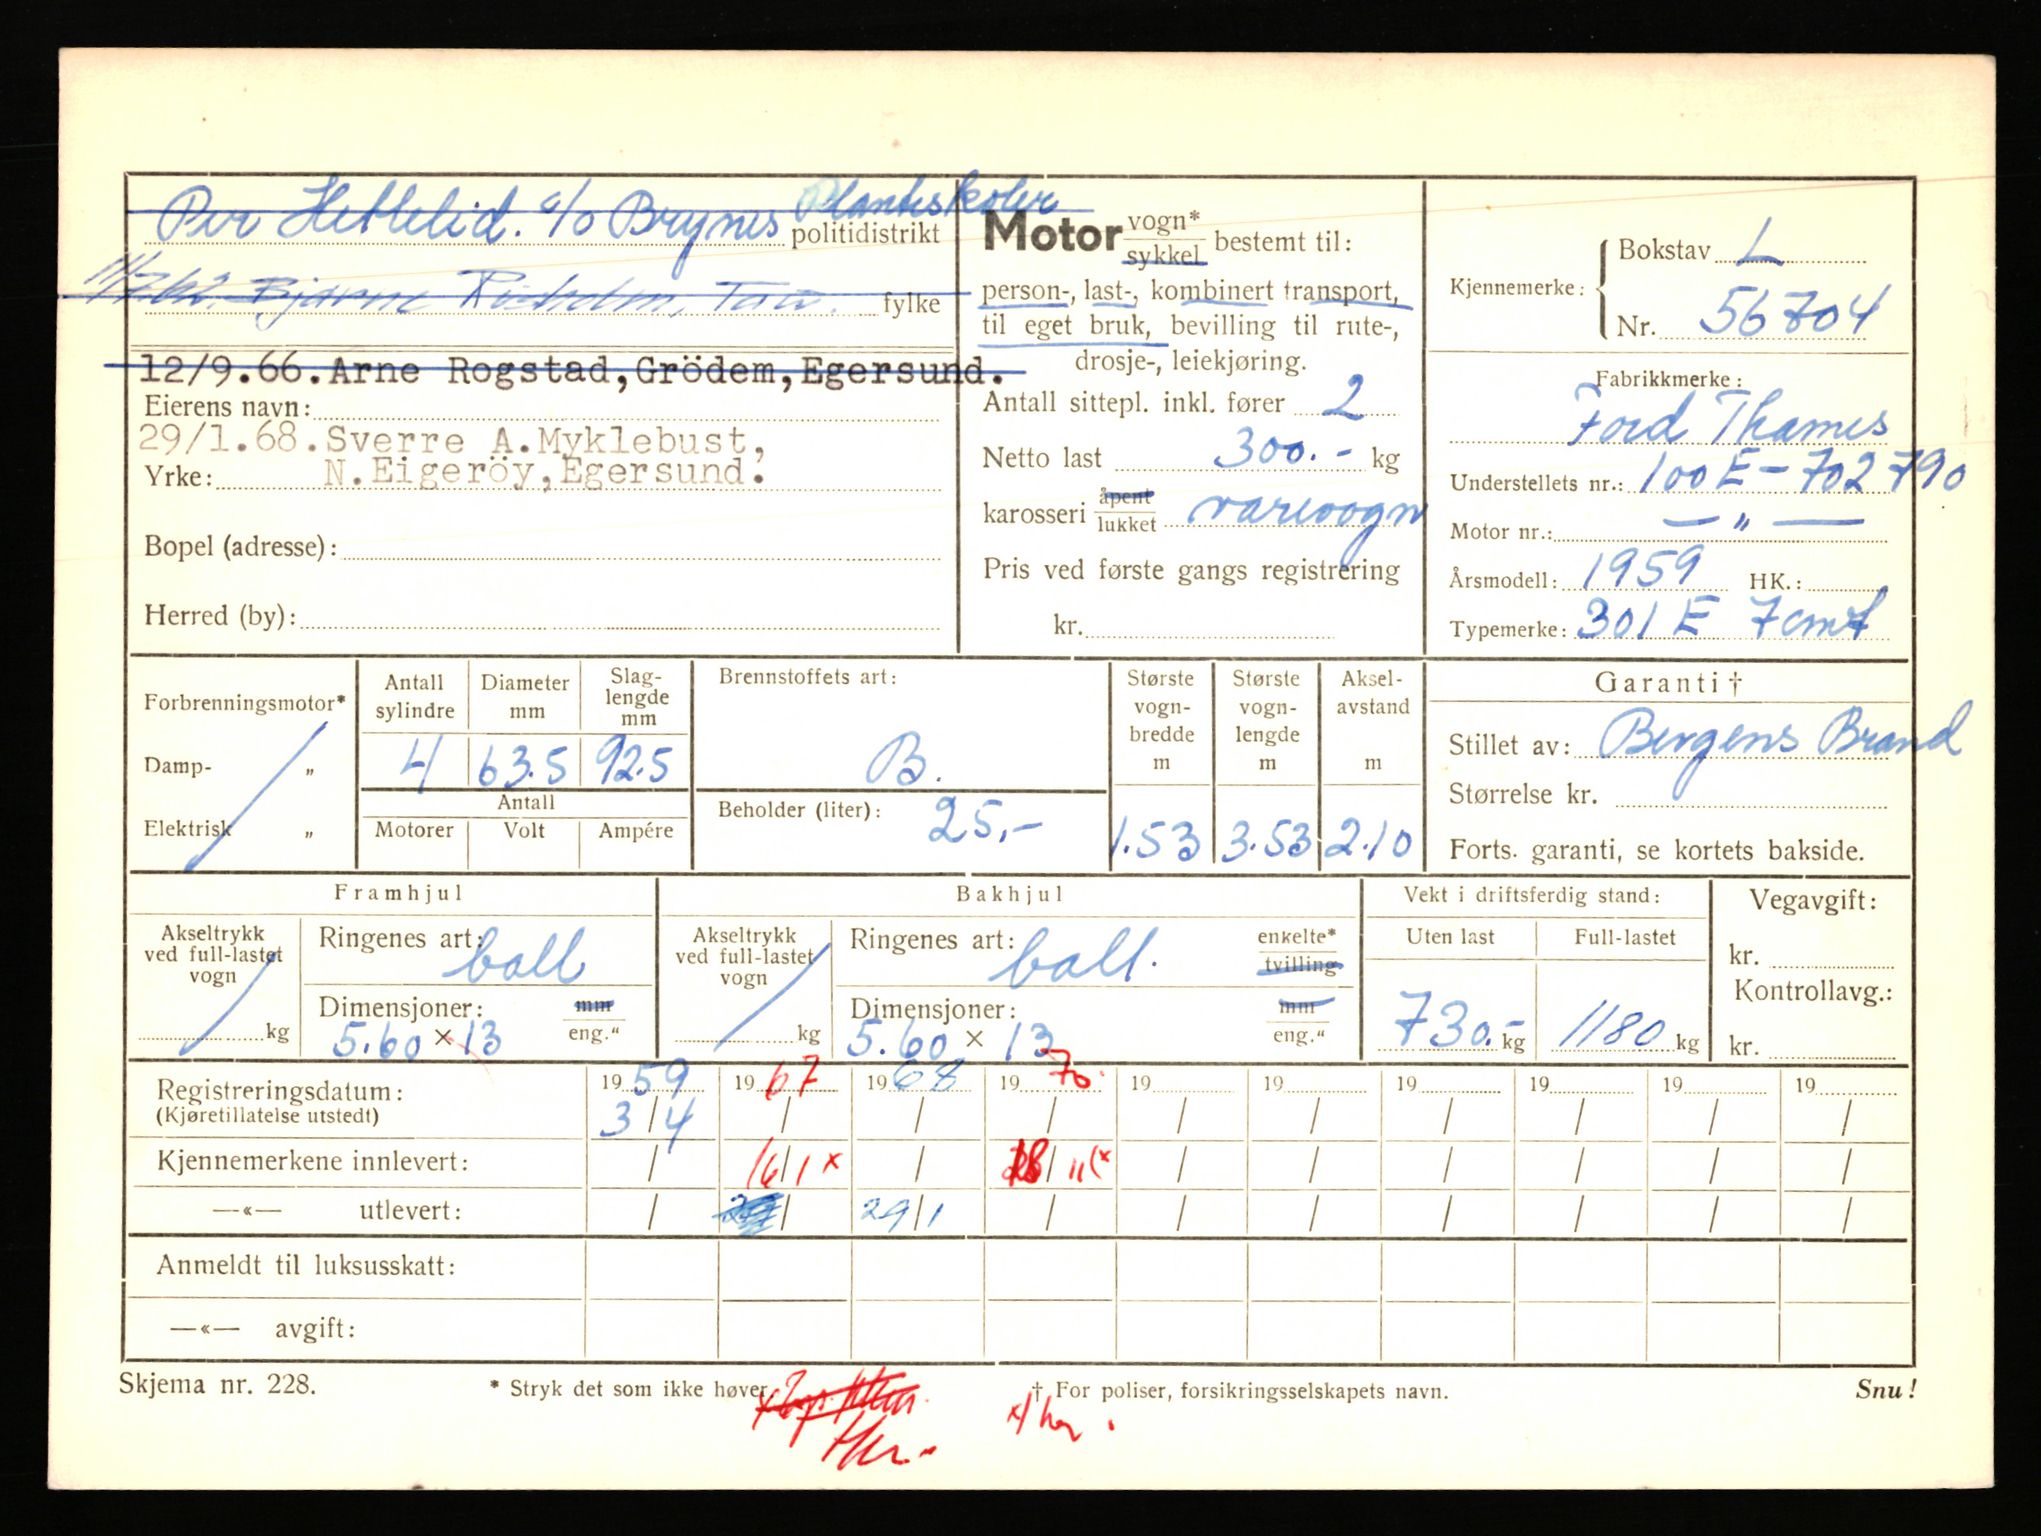 Per Hetlelid. c/o Brynes Planteskoler
politidistrikt
Bjarne
fylke
12/9.66.Arne Rogstad,Grödem,Egersund.
Eierens navn:
29/1.68.Sverre A.Myklebust,
Yrke: N.Eigeröy,Egersund.
Bopel (adresse):
Herred (by):
Motor vogn* sykkel bestemt til:
person-, last-, kombinert transport,
til eget bruk, bevilling til rute-,
drosje-, leiekjøring.
Antall sittepl. inkl. fører 2
Netto last 300.- kg
karosseri åpent lukket varevogn
Pris ved første gangs registrering
kr.
Kjennemerke: Bokstav L
Nr. 56704
Fabrikkmerke:
Ford Thames
Understellets nr.: 100E-702790
Motor nr.: — " —
Årsmodell: 1959 HK.:
Typemerke: 301 E 7cmt
Forbrenningsmotor*
Damp- "
Elektrisk "
Antall sylindre
Diameter mm
Slag-lengde mm
4 63.5 92.5
Antall
Motorer Volt Ampére
Brennstoffets art:
B.
Beholder (liter): 25,-
Største vogn-bredde m
1.53
Største vogn-lengde m
3.53
Aksel-avstand m
2.10
Garanti †
Stillet av: Bergens Brand
Størrelse kr.
Forts. garanti, se kortets bakside.
Framhjul
Akseltrykk ved full-lastet vogn
kg
Ringenes art: ball
Dimensjoner: mm eng."
5.60 × 13
Bakhjul
Akseltrykk ved full-lastet vogn
kg
Ringenes art: ball. enkelte* tvilling
Dimensjoner: mm eng."
5.60 × 13
Vekt i driftsferdig stand:
Uten last Full-lastet
730.- kg 1180 kg
Vegavgift:
kr.
Kontrollavg.:
kr.
Registreringsdatum: 1959 1967 1968 1970. 19 19 19 19 19 19
(Kjøretillatelse utstedt) 3/4 / / / / / / / / /
Kjennemerkene innlevert: / 16/1 x / 18/11 (x / / / / / /
—«— utlevert: / / 29/1 / / / / / / /
Anmeldt til luksusskatt:
—«— avgift:
Skjema nr. 228.
* Stryk det som ikke høver.
† For poliser, forsikringsselskapets navn.
Snu!
Her.
x/ her.